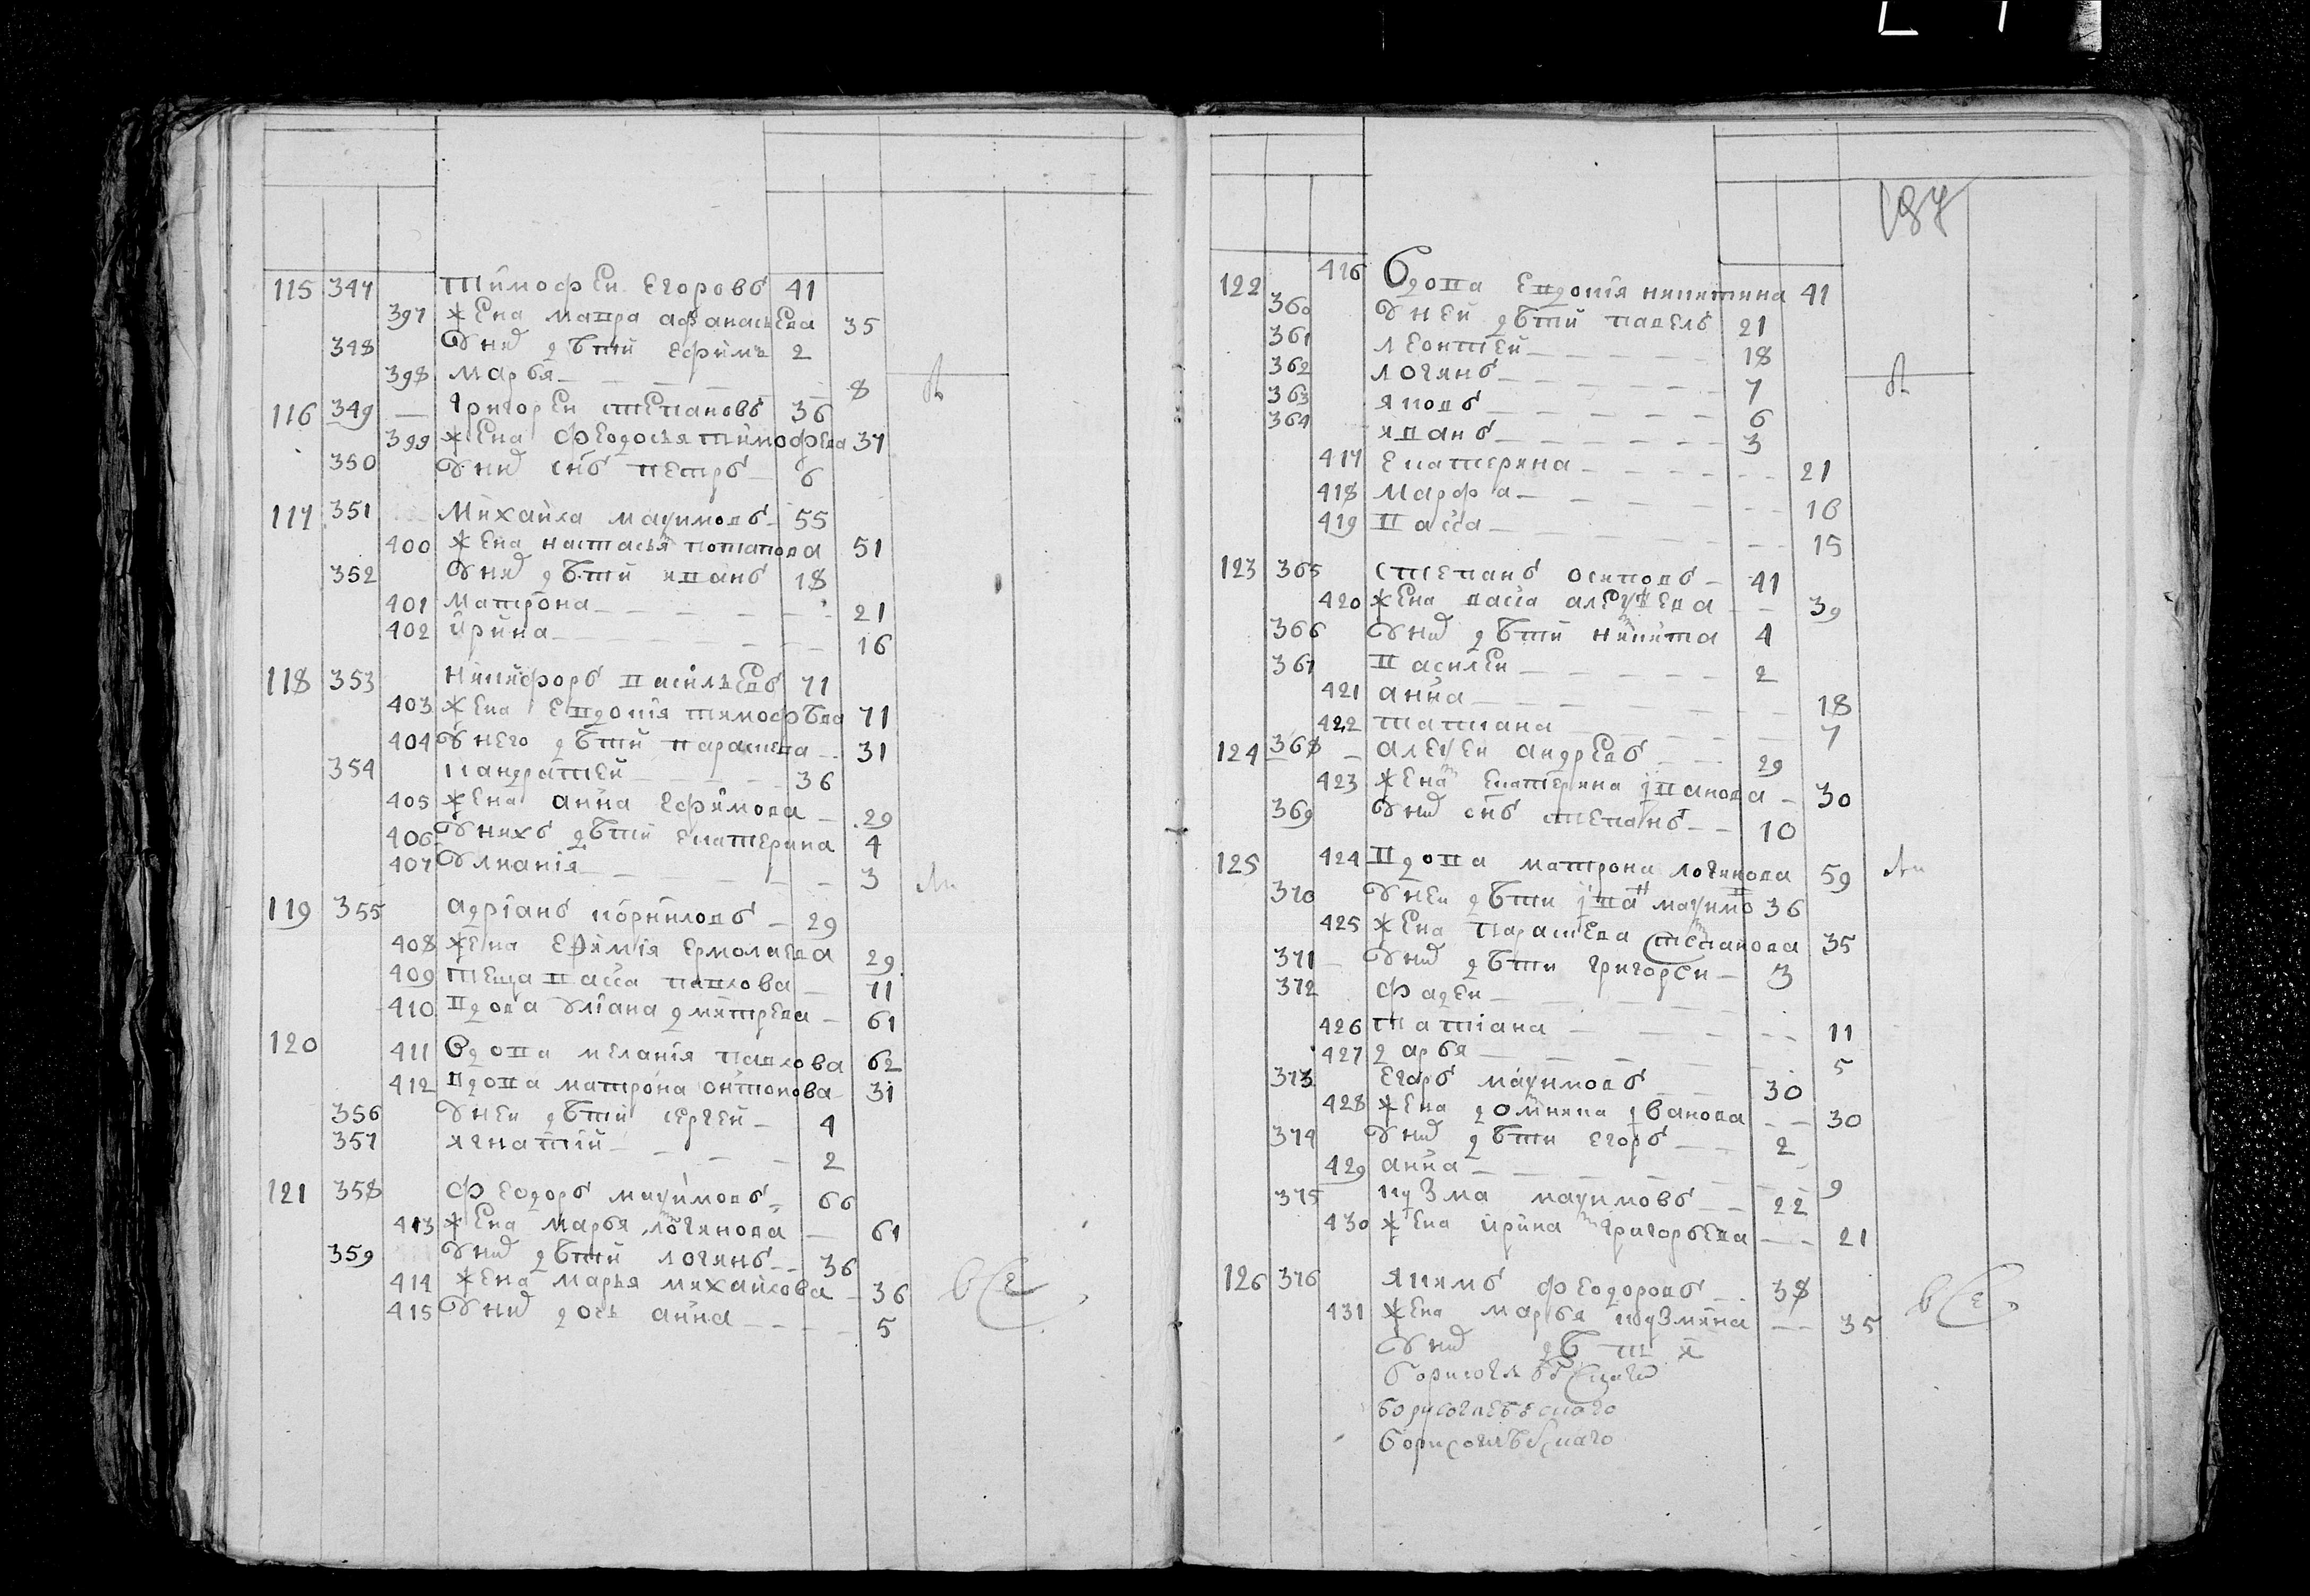 115 347 Тимофеи Егоровъ 41
397 жена мавра афанасьева 35
348 У них дѣти ефимъ 2
398 марья 8
116 349 Григореи степановъ 36
399 жена феодосья тимофева 37
350 У них снъ петръ 6
117 351 Михаила максимовъ 55
400 жена настасья потапова 51
352 У них дѣти иванъ 18
401 матрона 21
402 ирина 16
118 353 Никифоръ васильевъ 71
403 жена евдокия тимофѣва 71
404 У него дѣти парасковья 31
354 кандратеи 36
405 жена анна ефимова 29
406 У нихъ дѣти екатерина 4
407 Улиания 3
119 355 адрианъ корниловъ 29
408 жена ефимия ермолаева 29
409 теща васса павлова 71
410 вдова улиана дмитрева 61
120 411 вдова мелания павлова 62
412 вдова матрона онтонова 31
356 У неи дѣти сергеи 4
357 игнатии 2
121 358 феодоръ максимовъ 66
413 жена марья логинова 61
359 У них дѣти логинъ 36
414 жена марья михаилова 36
415 У них дочь анна 5
187
122 416 вдова евдокия никитина 41
360 У неи дѣти павелъ 21
361 леонтеи 18
362 логинъ 7
363 яковъ 6
364 иванъ 3
417 екатерина 21
418 марфа 16
419 васса 15
123 365 степанъ осиповъ 41
420 жена васса алексѣева 39
366 У них дѣти никита 4
367 василеи 2
421 анна 18
422 татиана 7
124 368 алексеи андревъ 29
423 жена екатерина иванова 30
369 У них снъ степанъ 10
125 424 вдова матрона логинова 59
370 У неи дѣти iван максимов 36
425 жена парасковья степанова 35
371 У них дѣти григореи 3
372 фадеи
426 татиана 11
427 дарья 5
373 егоръ максимовъ 30
428 жена домника iванова 30
374 У них дѣти егоръ 2
429 анна 9
375 кузма максимовъ 22
430 жена ирина григорьева 21
126 376 якимъ феодоровъ 38
431 жена марья кузмина 35
У них дѣти
борисоглѣбскаго
борисоглебъскаго
борисоглѣбскаго